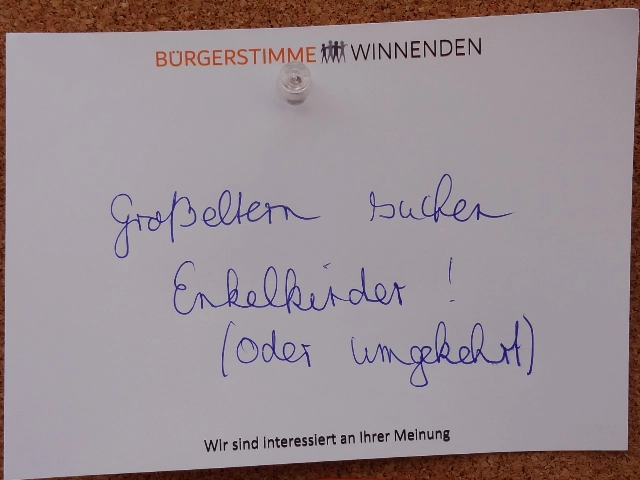 BÜRGERSTIMME WINNENDEN
Großeltern suchen
Enkelkinder !
(oder umgekehrt)
Wir sind interessiert an Ihrer Meinung